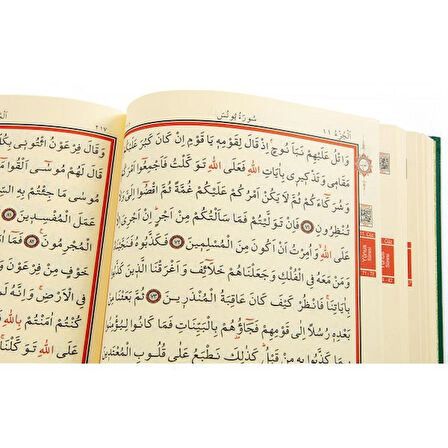 اَلْجُزْءُ ١١
سُورَةُ يُونُسَ
وَاتْلُ عَلَيْهِمْ نَبَاَ نُوحٍ اِذْ قَالَ لِقَوْمِهِ يَا قَوْمِ اِنْ كَانَ كَبُرَ عَلَيْكُمْ
مَقَامِى وَتَذْكِيرِى بِاٰيَاتِ اللّٰهِ فَعَلَى اللّٰهِ تَوَكَّلْتُ فَاَجْمِعُوا
وَشُرَكَاءَكُمْ ثُمَّ لَا يَكُنْ اَمْرُكُمْ عَلَيْكُمْ غُمَّةً ثُمَّ اقْضُوا اِلَىَّ وَلَا
تُنْظِرُونِ ٧١ فَاِنْ تَوَلَّيْتُمْ فَمَا سَاَلْتُكُمْ مِنْ اَجْرٍ اِنْ اَجْرِىَ اِلَّا
عَلَى اللّٰهِ وَاُمِرْتُ اَنْ اَكُونَ مِنَ الْمُسْلِمِينَ ٧٢ فَكَذَّبُوهُ
وَمَنْ مَعَهُ فِى الْفُلْكِ وَجَعَلْنَاهُمْ خَلَائِفَ وَاَغْرَقْنَا الَّذِينَ
بِاٰيَاتِنَا فَانْظُرْ كَيْفَ كَانَ عَاقِبَةُ الْمُنْذَرِينَ ٧٣ ثُمَّ بَعَثْنَا مِنْ
بَعْدِهِ رُسُلًا اِلٰى قَوْمِهِمْ فَجَاؤُهُمْ بِالْبَيِّنَاتِ فَمَا كَانُوا لِيُؤْمِنُوا
بِمَا كَذَّبُوا بِهِ مِنْ قَبْلُ كَذٰلِكَ نَطْبَعُ عَلٰى قُلُوبِ الْمُعْتَدِينَ
٢١٧
وَقَالَ فِرْعَوْنُ ائْتُونِى بِكُلِّ
قَالَ لَهُمْ مُوسٰى اَلْقُوا مَا
مُوسٰى مَا جِئْتُمْ بِهِ
عَمَلَ الْمُفْسِدِينَ ٨١
الْمُجْرِمُونَ ٨٢ فَمَا
خَوْفٍ مِنْ فِرْعَوْنَ
فِى الْاَرْضِ وَاِنَّهُ
كُنْتُمْ اٰمَنْتُمْ بِاللّٰهِ
عَلَى اللّٰهِ تَوَكَّلْنَا
Yûnus Sûresi